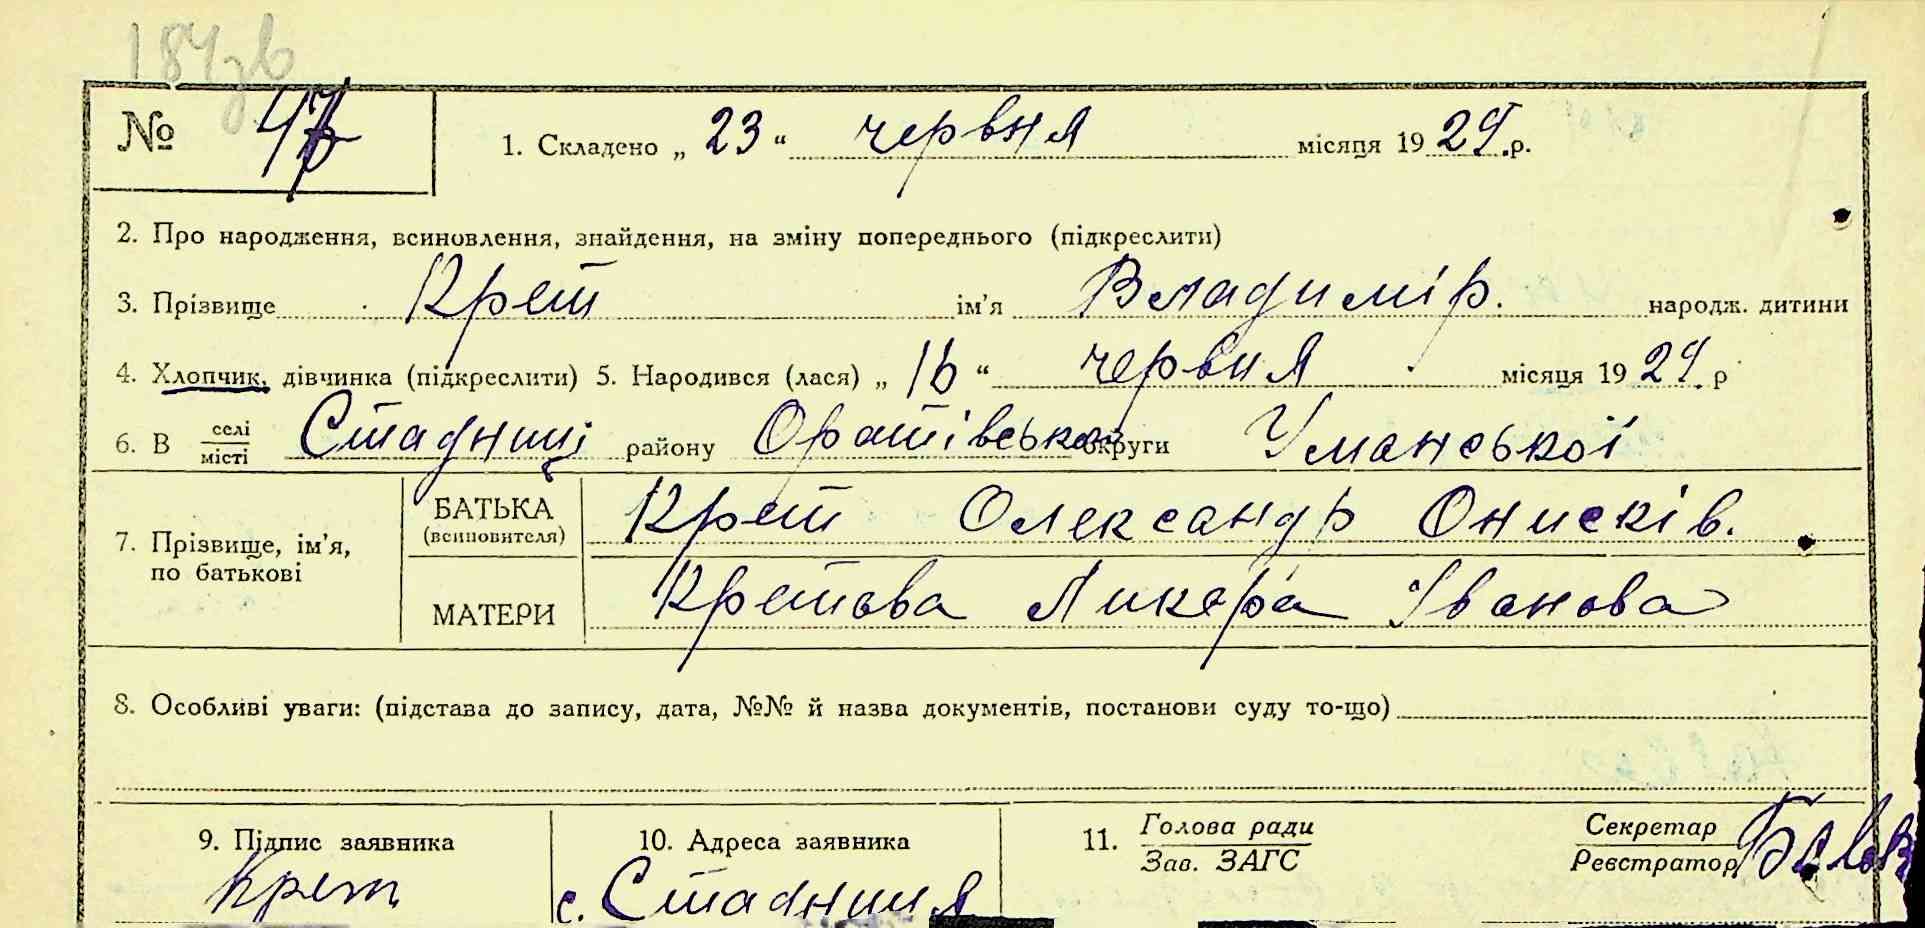 184зв
№ 47
1. Складено „ 23 “ червня місяця 1929.р.
2. Про народження, всиновлення, знайдення, на зміну попереднього (підкреслити)
3. Прізвище Крет ім’я Владимір. народж. дитини
4. Хлопчик, дівчинка (підкреслити) 5. Народився (лася) „ 16 “ червня місяця 1929. р
6. В селі місті Стадниці району Оратівської округи Уманської
7. Прізвище, ім’я, по батькові
БАТЬКА (всиновителя) Крет Олександр Онисків.
МАТЕРИ Кретова Ликера Іванова
8. Особливі уваги: (підстава до запису, дата, №№ й назва документів, постанови суду то-що)
9. Підпис заявника 10. Адреса заявника 11. Голова ради Зав. ЗАГС Секретар Реєстратор
Крет с. Стадниця